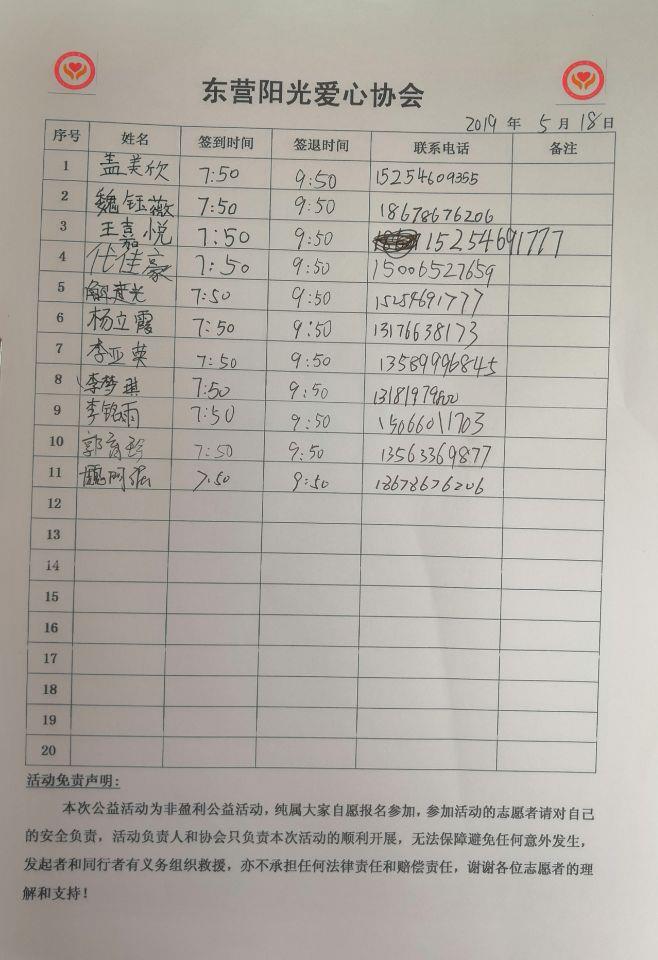 东营阳光爱心协会
2019 年 5 月 18 日
序号 姓名 签到时间 签退时间 联系电话 备注
1 盖美欣 7:50 9:50 15254609355
2 魏钰薇 7:50 9:50 18678676206
3 王嘉悦 7:50 9:50 15254691777
4 代佳豪 7:50 9:50 15006527659
5 7:50 9:50 15254691777
6 杨立霞 7:50 9:50 13176638173
7 李亚英 7:50 9:50 13589996845
8 李梦琪 7:50 9:50
9 李铭雨 7:50 9:50 15066011703
10 7:50 9:50 13563369877
11 7:50 9:50 18678676206
12
13
14
15
16
17
18
19
20
活动免责声明:
本次公益活动为非盈利公益活动，纯属大家自愿报名参加，参加活动的志愿者请对自己
的安全负责，活动负责人和协会只负责本次活动的顺利开展，无法保障避免任何意外发生，
发起者和同行者有义务组织救援，亦不承担任何法律责任和赔偿责任，谢谢各位志愿者的理
解和支持！